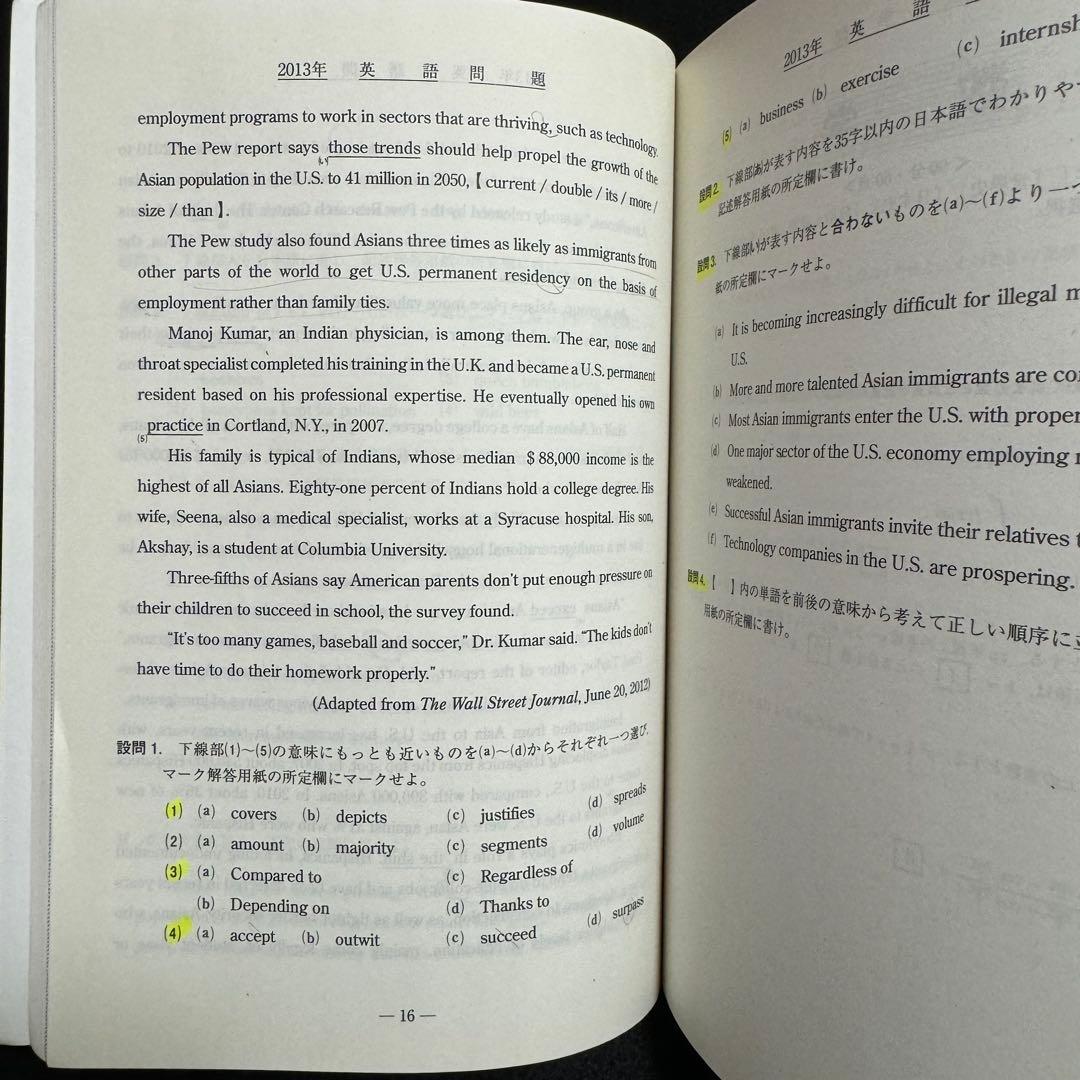 2013年 英 語 問 題
employment programs to work in sectors that are thriving, such as technology.
The Pew report says those trends should help propel the growth of the
(い)
Asian population in the U.S. to 41 million in 2050, 【 current / double / its / more /
size / than 】.
The Pew study also found Asians three times as likely as immigrants from
other parts of the world to get U.S. permanent residency on the basis of
employment rather than family ties.
Manoj Kumar, an Indian physician, is among them. The ear, nose and
throat specialist completed his training in the U.K. and became a U.S. permanent
resident based on his professional expertise. He eventually opened his own
practice in Cortland, N.Y., in 2007.
(5)
His family is typical of Indians, whose median $ 88,000 income is the
highest of all Asians. Eighty-one percent of Indians hold a college degree. His
wife, Seena, also a medical specialist, works at a Syracuse hospital. His son,
Akshay, is a student at Columbia University.
Three-fifths of Asians say American parents don't put enough pressure on
their children to succeed in school, the survey found.
“It's too many games, baseball and soccer,” Dr. Kumar said. “The kids don't
have time to do their homework properly.”
(Adapted from The Wall Street Journal, June 20, 2012)
設問 1. 下線部(1)～(5)の意味にもっとも近いものを(a)～(d)からそれぞれ一つ選び,
マーク解答用紙の所定欄にマークせよ。
(1) (a) covers (b) depicts (c) justifies (d) spreads
(2) (a) amount (b) majority (c) segments (d) volume
(3) (a) Compared to (c) Regardless of
(b) Depending on (d) Thanks to
(4) (a) accept (b) outwit (c) succeed (d) surpass
— 16 —
2013年 英 語
(5) (a) business (b) exercise (c) internsh
設問2. 下線部(あ)が表す内容を35字以内の日本語でわかりや
記述解答用紙の所定欄に書け。
設問3. 下線部(い)が表す内容と合わないものを(a)～(f)より一
紙の所定欄にマークせよ。
(a) It is becoming increasingly difficult for illegal m
U.S.
(b) More and more talented Asian immigrants are co
(c) Most Asian immigrants enter the U.S. with proper
(d) One major sector of the U.S. economy employing
weakened.
(e) Successful Asian immigrants invite their relatives t
(f) Technology companies in the U.S. are prospering.
設問4. 【 】内の単語を前後の意味から考えて正しい順序に
用紙の所定欄に書け。